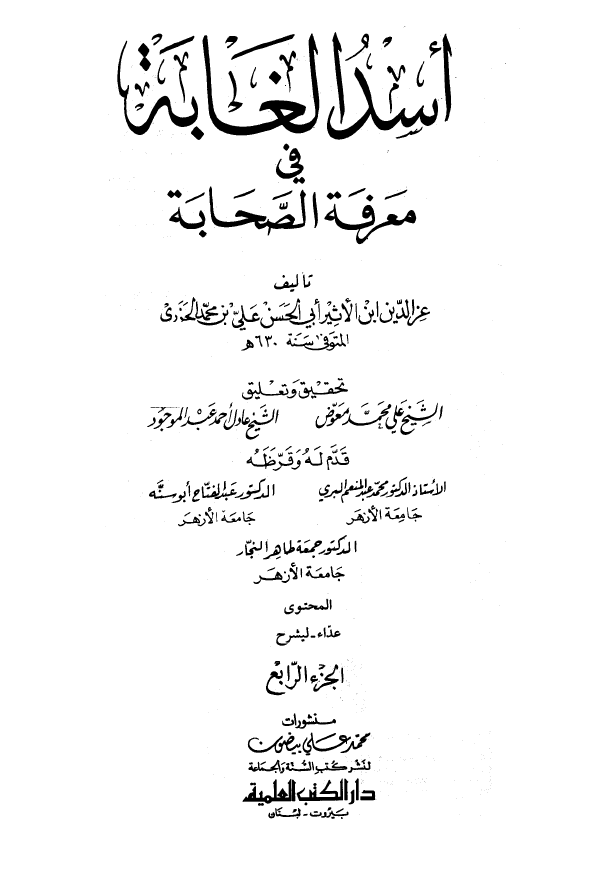 أسد الغابة
في
معرفة الصحابة
تأليف
عز الدين ابن الأثير أبي الحسن علي بن محمد الجزري
المتوفى سنة ٦٣٠ هـ
تحقيق وتعليق
الشيخ علي محمد معوض الشيخ عادل أحمد عبد الموجود
قدم له وقرظه
الأستاذ الدكتور محمد عبد المنعم البري الدكتور عبد الفتاح أبو سنة
جامعة الأزهر جامعة الأزهر
الدكتور جمعة طاهر النجار
جامعة الأزهر
المحتوى
عداء - ليشرح
الجزء الرابع
منشورات
محمد علي بيضون
لنشر كتب السنة والجماعة
دار الكتب العلمية
بيروت - لبنان